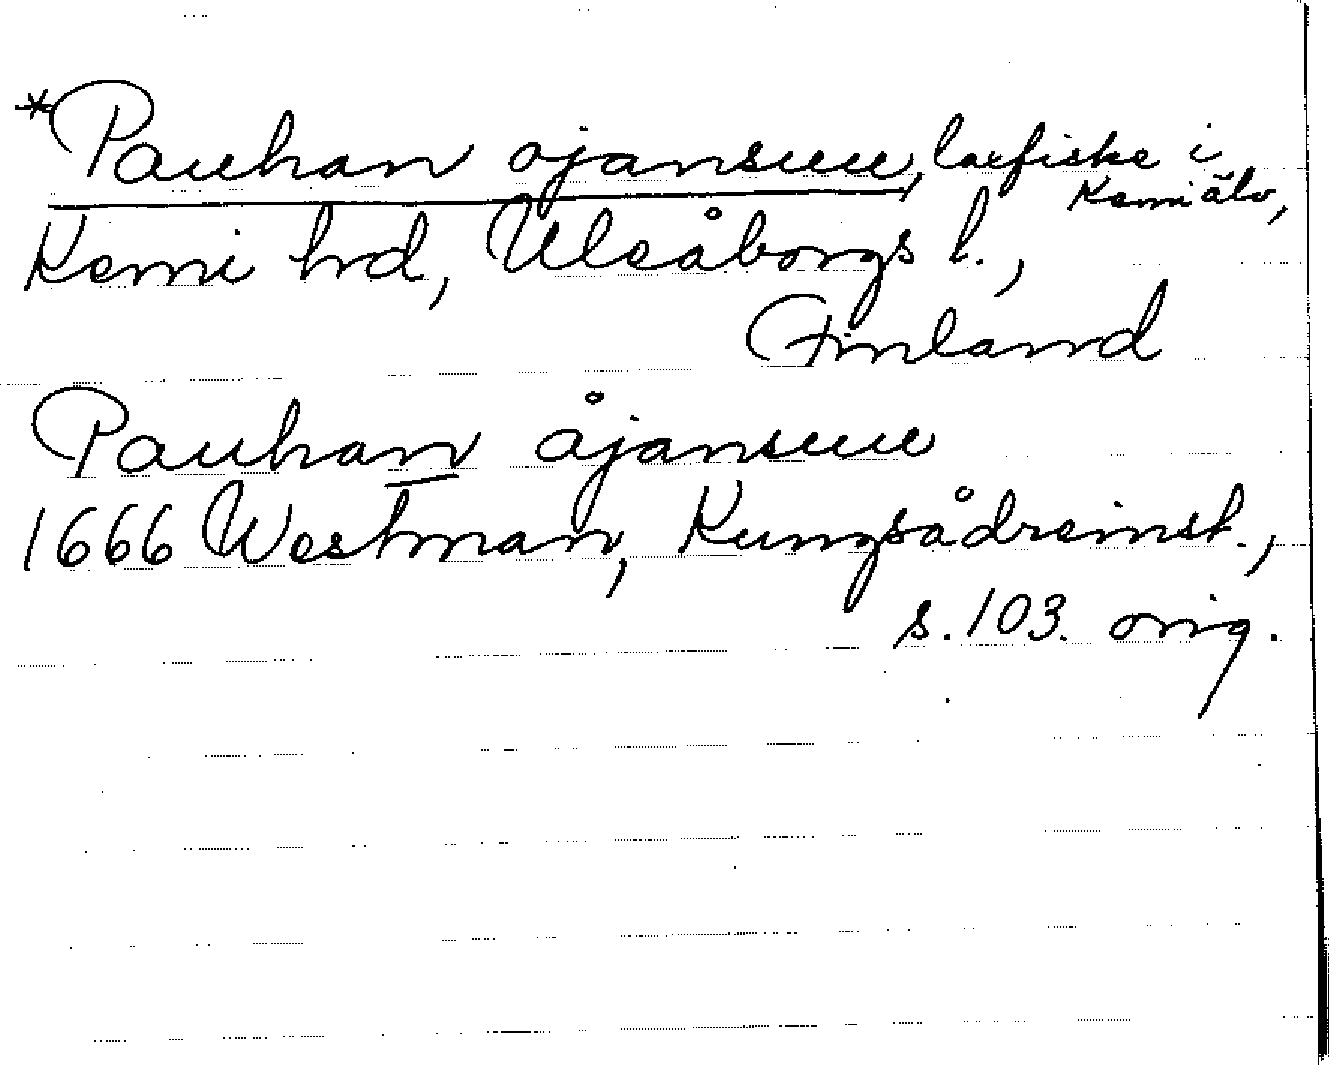 *Pauhan ojansuu, laxfiske i
Kemi älv,
Kemi hrd, Uleåborgs l.,
Finland
Pauhan åjansuu
1666 Westman, Kungsådreinst.,
s. 103. orig.